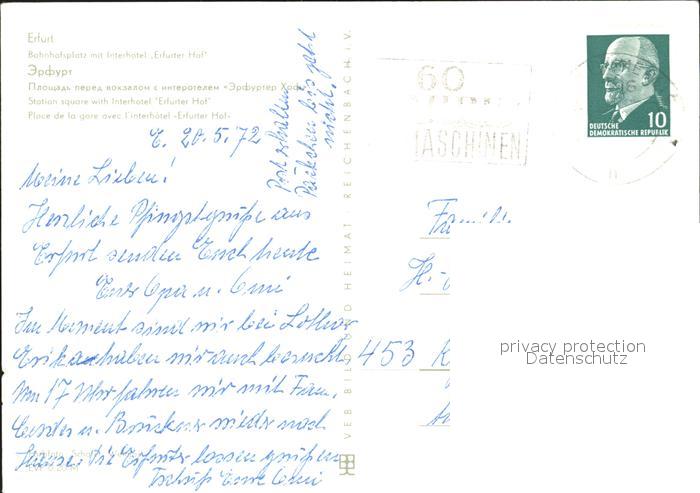 Erfurt
Bahnhofsplatz mit Interhotel „Erfurter Hof"
Эрфурт
Площадь перед вокзалом с интеротелем «Эрфуртер Хоф»
Station square with Interhotel "Erfurter Hof"
Place de la gare avec l'interhôtel «Erfurter Hof»
E. 20.5.72
Post erhalten
Päckchen bis jetzt
nicht.
Meine Lieben!
Herzliche Pfingstgrüße aus
Erfurt senden Euch heute
Eure Opa u. Omi
Im Moment sind wir bei Lothar
Erika haben wir auch besucht
Um 17 Uhr fahren wir mit Fam.
u. Brückner wieder nach
Hause. Die Erfurter lassen grüßen
Tschüß Eure Omi
VEB BILD UND HEIMAT · REICHENBACH i.V.
60
MASCHINEN
10
DEUTSCHE
DEMOKRATISCHE REPUBLIK
Famili
H
453 K
privacy protection
Datenschutz